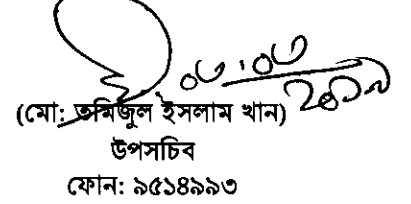 ০৩.০৩
২০১৯
(মো: তমিজুল ইসলাম খান)
উপসচিব
ফোন: ৯৫১৪৯৯৩